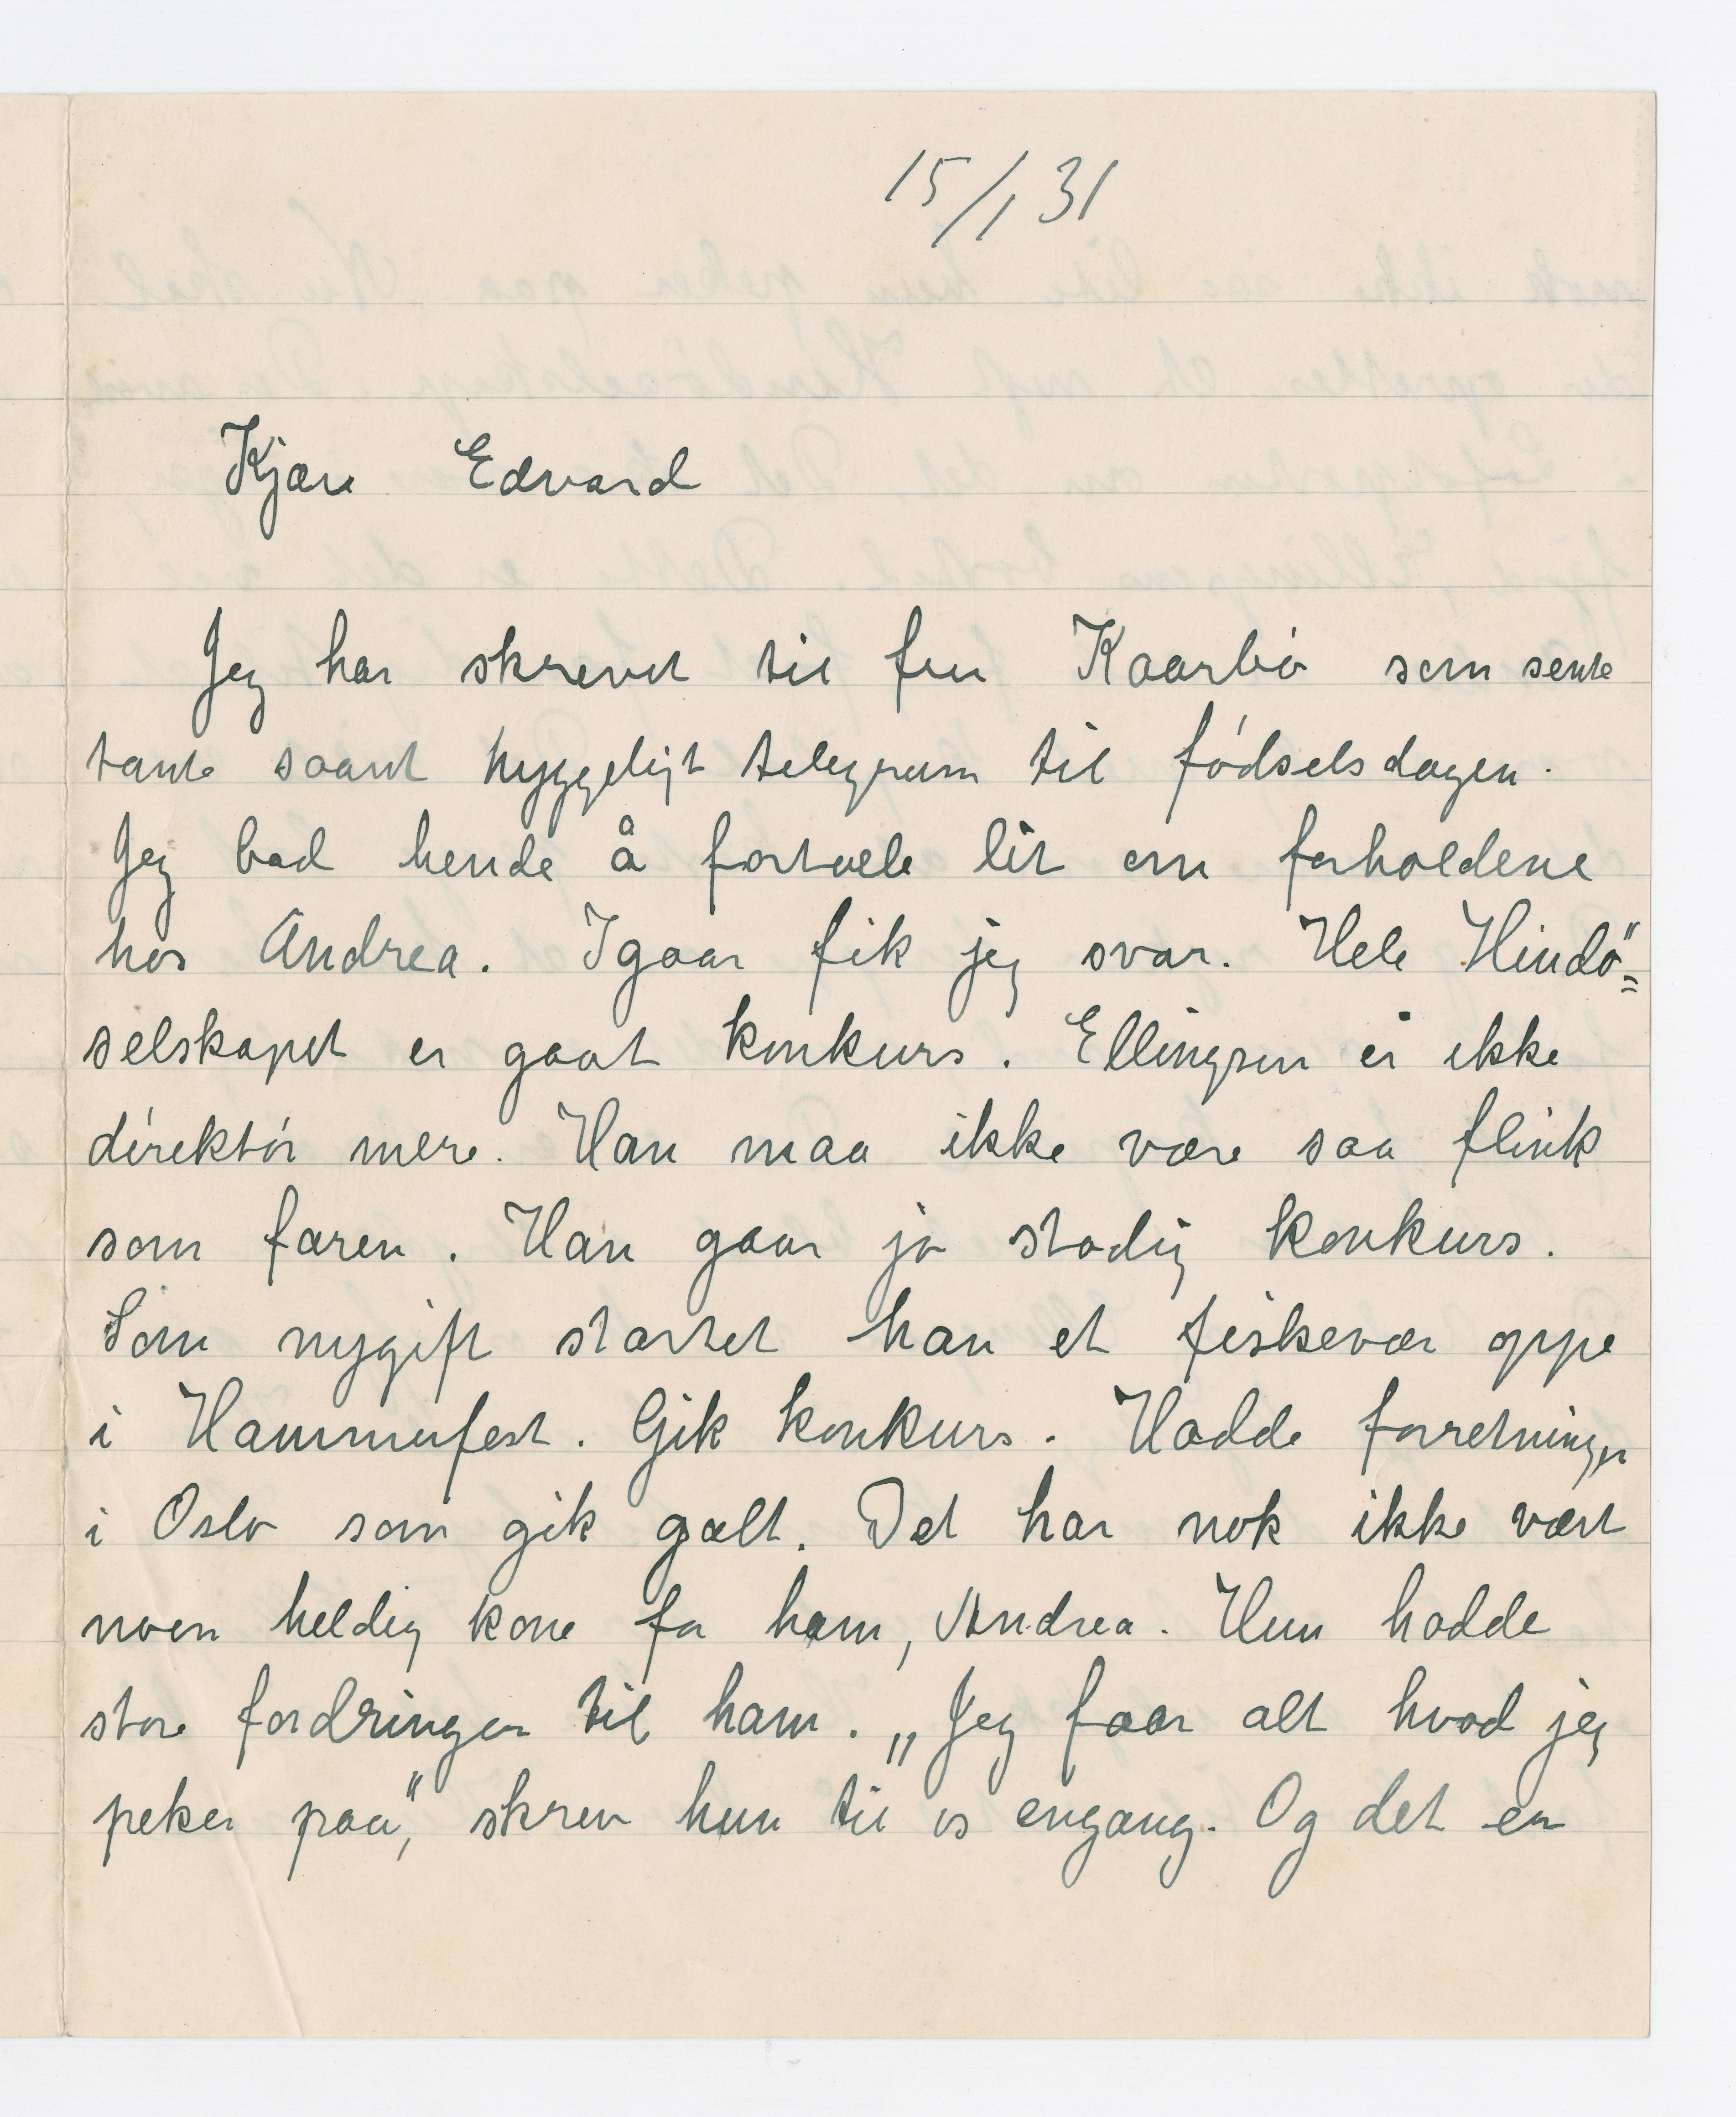 15/1 31
Kjære Edvard
Jeg har skrevet til fru Kaarbö som sente
tante saant hyggeligt telegram til födselsdagen.
Jeg bad hende å fortælle lit om forholdene
hos Andrea. Igaar fik jeg svar. Hele Hindö=
selskapet er gaat konkurs. Ellingsen er ikke
direktör mere. Han maa ikke være saa flink
som faren. Han gaar jo stadig konkurs.
Som nygift startet han et fiskevær oppe
i Hammerfest. Gik konkurs. Hadde forretninger
i Oslo som gik galt. Det har nok ikke vært
noen heldig kone for ham, Andrea. Hun hadde
store fordringer til ham. „Jeg faar alt hvad jeg
peker paa", skrev hun til os engang. Og det er